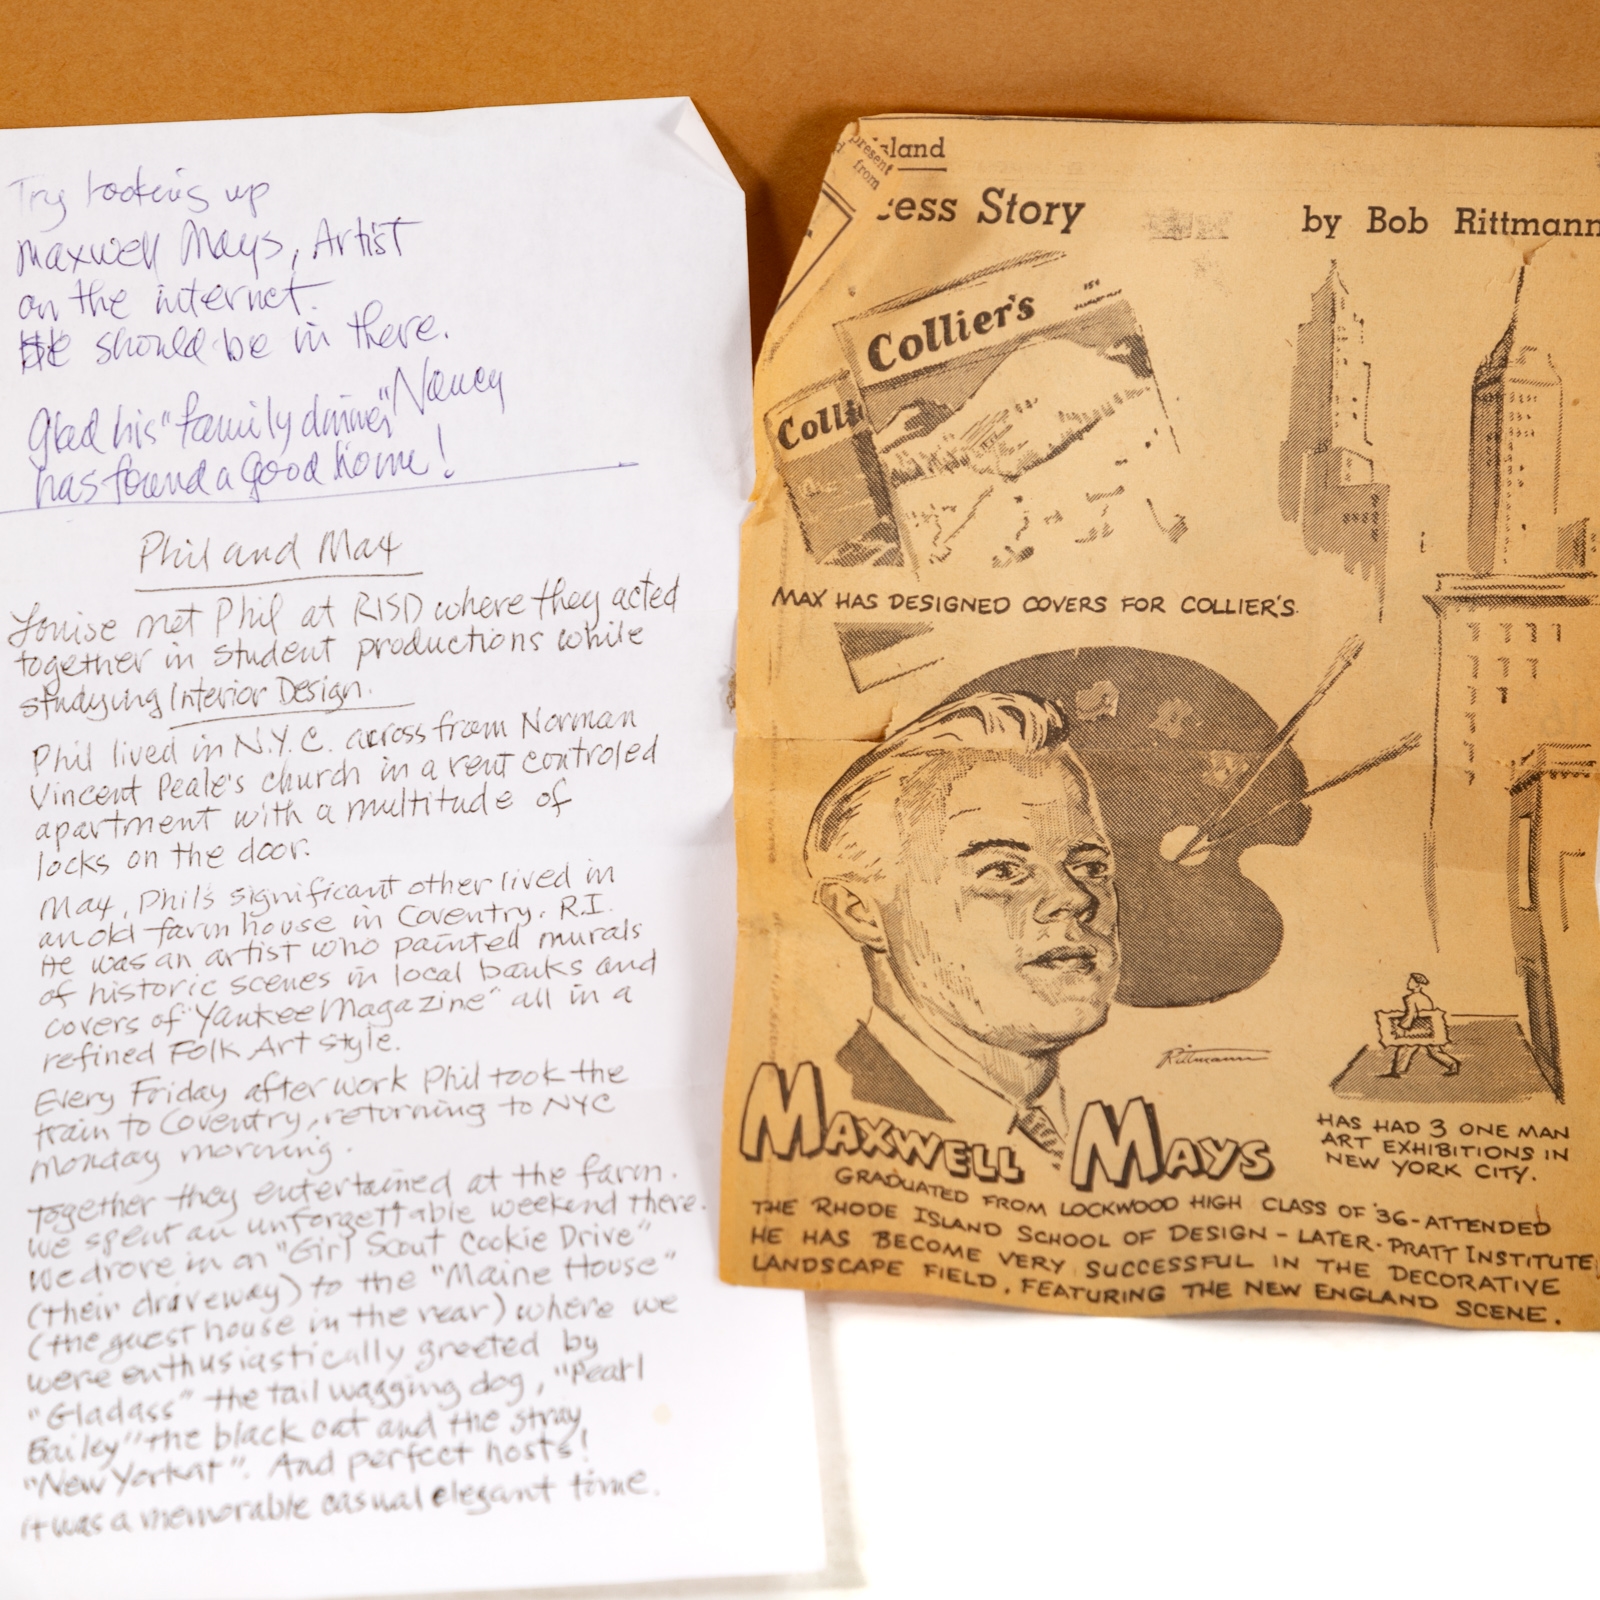 Try looking up
Maxwell Mays, Artist
on the internet.
He should be in there.
Nancy
Glad his "family dinner"
has found a good home!
Phil and Max
Louise met Phil at RISD where they acted
together in student productions while
studying Interior Design.
Phil lived in N.Y.C. across from Norman
Vincent Peale's church in a rent controled
apartment with a multitude of
locks on the door.
Max, Phil's significant other lived in
an old farm house in Coventry, R.I.
He was an artist who painted murals
of historic scenes in local banks and
covers of "Yankee Magazine" all in a
refined Folk Art style.
Every Friday after work Phil took the
train to Coventry, returning to NYC
Monday morning.
Together they entertained at the farm.
We spent an unforgettable weekend there.
We drove in on "Girl Scout Cookie Drive"
(their driveway) to the "Maine House"
(the guest house in the rear) where we
were enthusiastically greeted by
"Gladass" the tail wagging dog, "Pearl
Bailey" the black cat and the stray
"New Yorkat". And perfect hosts!
It was a memorable casual elegant time.
present
from
sland
cess Story
by Bob Rittmann
Collier's
15¢
Colli
MAX HAS DESIGNED COVERS FOR COLLIER'S.
Rittmann
MAXWELL MAYS
HAS HAD 3 ONE MAN
ART EXHIBITIONS IN
NEW YORK CITY.
GRADUATED FROM LOCKWOOD HIGH CLASS OF '36-ATTENDED
THE RHODE ISLAND SCHOOL OF DESIGN - LATER-PRATT INSTITUTE,
HE HAS BECOME VERY SUCCESSFUL IN THE DECORATIVE
LANDSCAPE FIELD, FEATURING THE NEW ENGLAND SCENE.